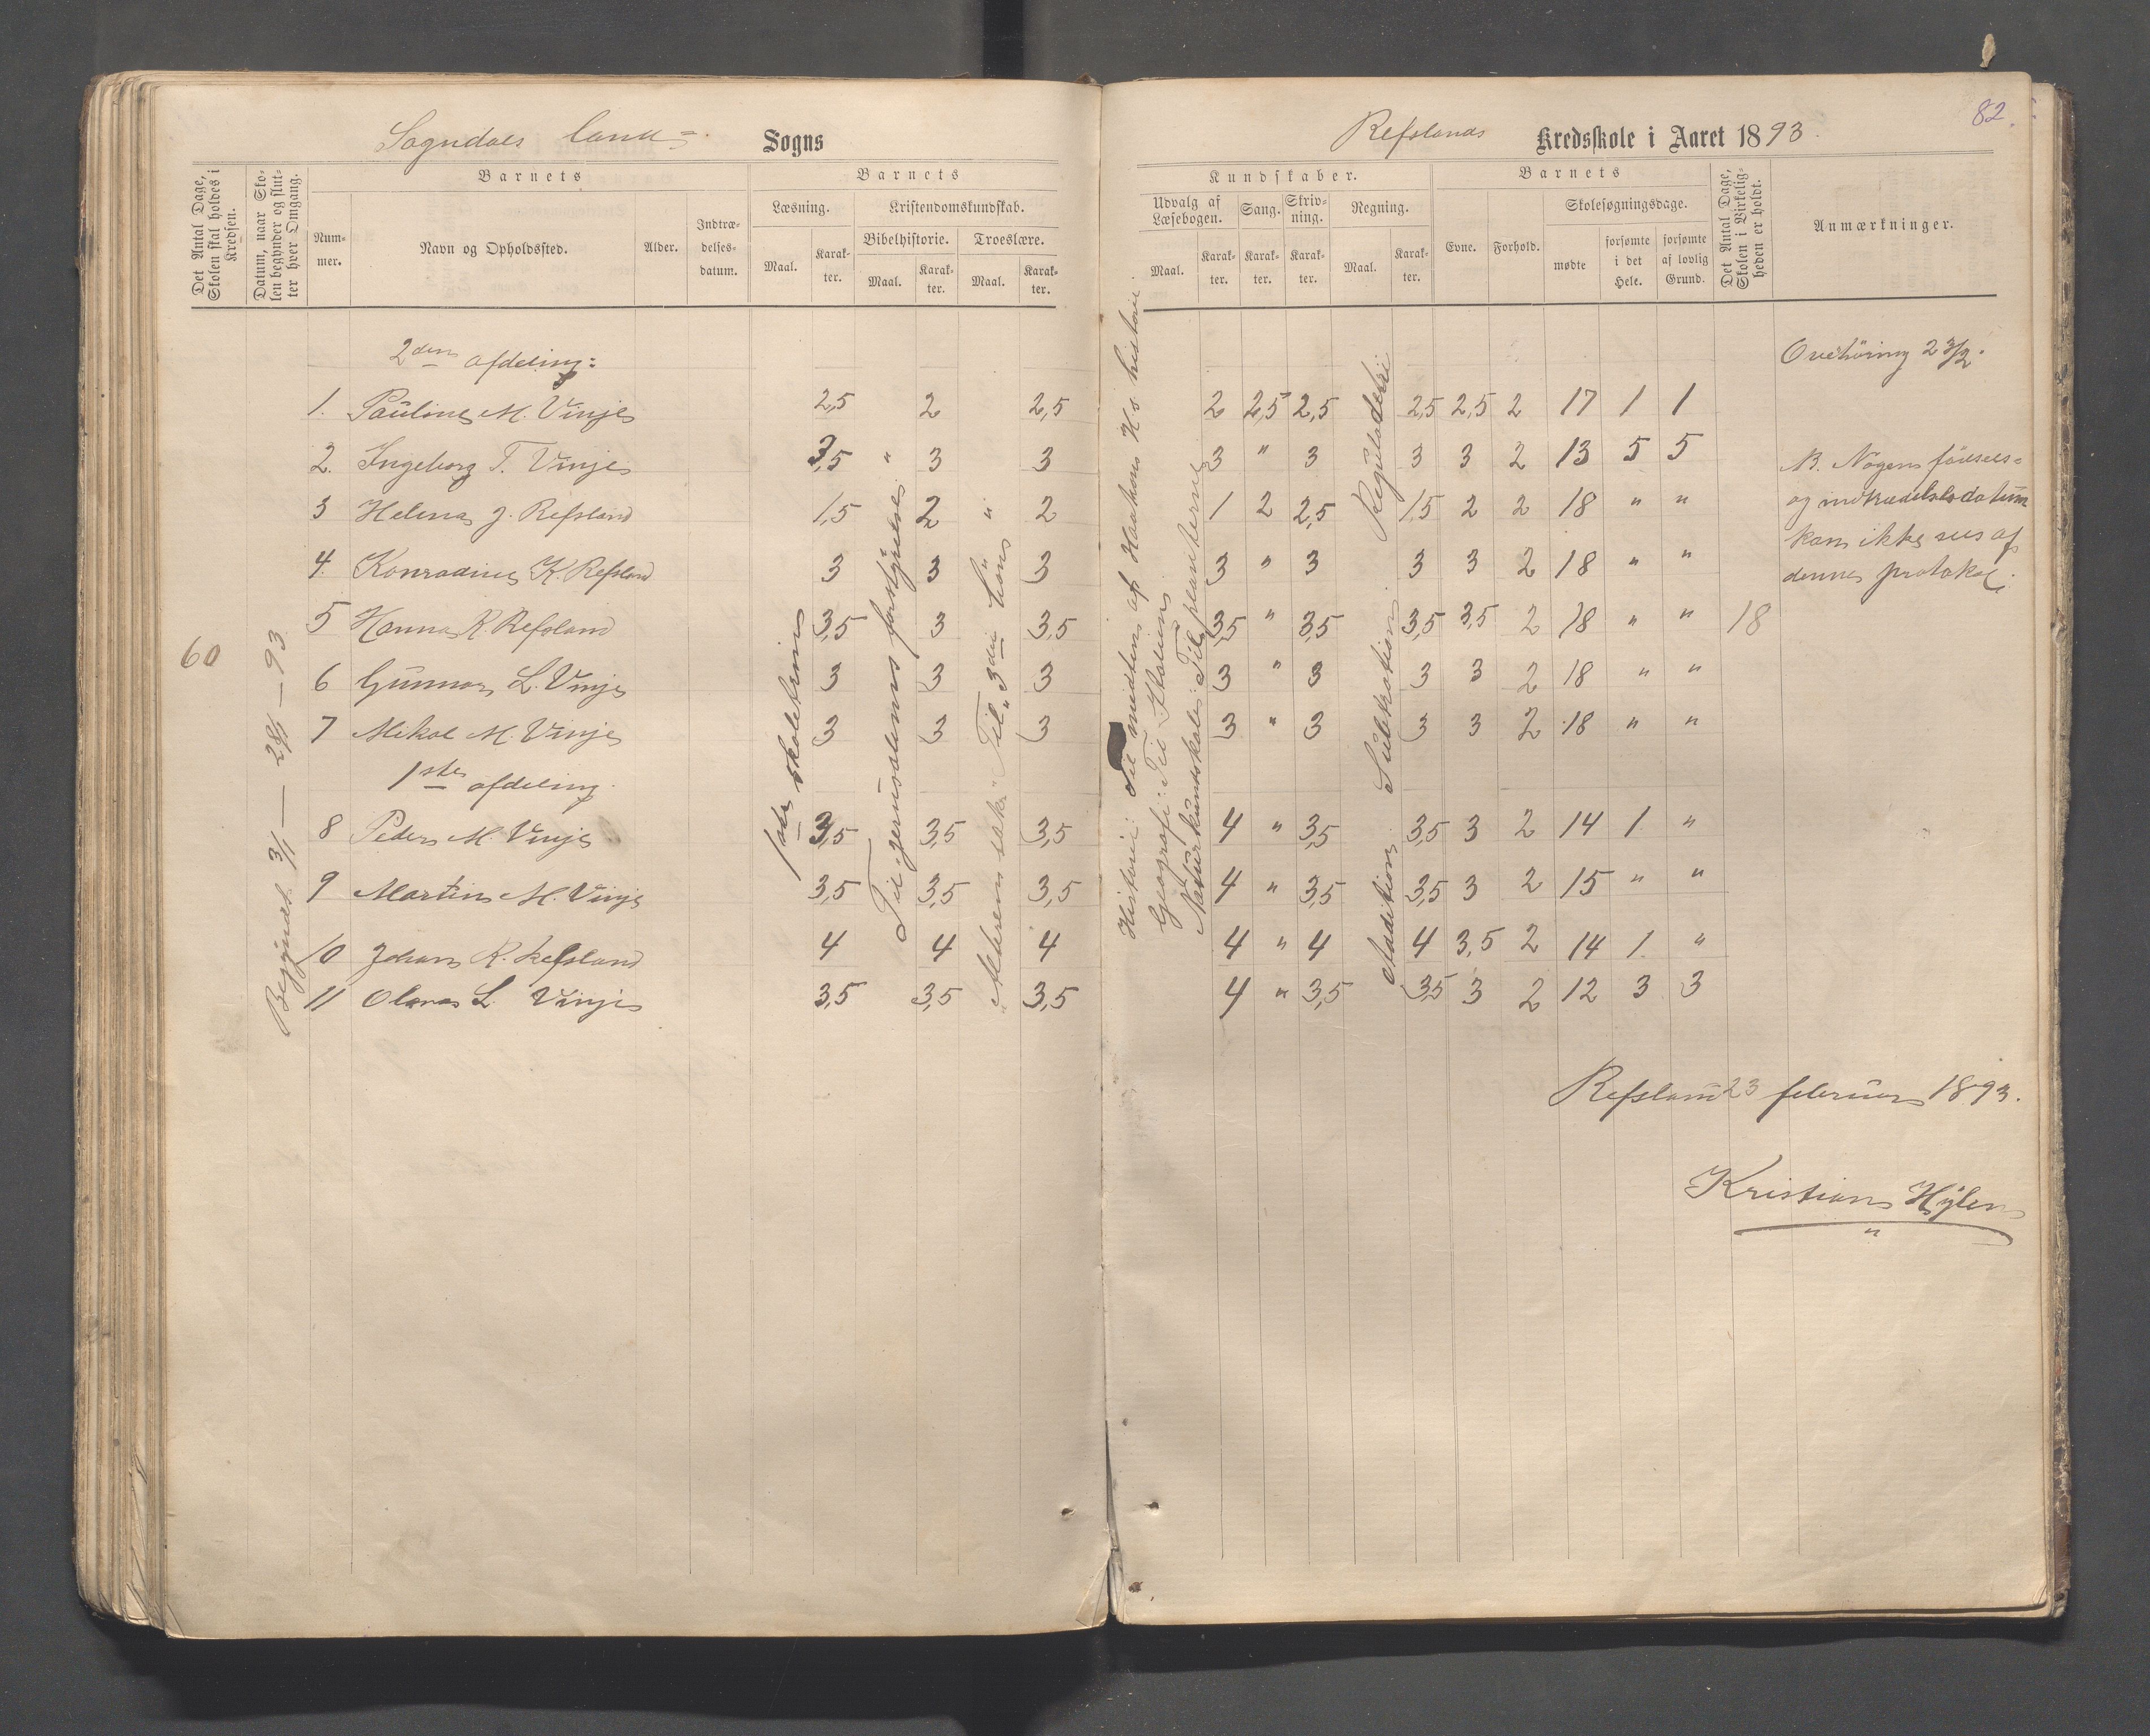 82.
Sogndals land= Sogns
Refslands Kredsskole i Aaret 1893.
Det Antal Dage, Skolen skal holdes i Kredsen.
Datum, naar Skolen begynder og slutter hver Omgang.
Barnets
Nummer.
Navn og Opholdssted.
Alder.
Indtrædelsesdatum.
Barnets
Læsning.
Maal. Karakter.
Kristendomskundskab.
Bibelhistorie. Troeslære.
Maal. Karakter. Maal. Karakter.
Kundskaber.
Udvalg af Læsebogen. Sang. Skrivning. Regning.
Maal. Karakter. Karakter. Karakter. Maal. Karakter.
Barnets
Evne. Forhold.
Skolesøgningsdage.
mødte forsømte i det Hele. forsømte af lovlig Grund.
Det Antal Dage, Skolen i Virkeligheden er holdt.
Anmærkninger.
2den afdeling: Overhøring 23/2.
1. Pauline M. Vinje 2,5 2 2,5 2 2,5 2,5 2,5 2,5 2 17 1 1
2. Ingeborg T. Vinje 3,5 " 3 3 3 " 3 3 3 2 13 5 5
3 Helena J. Refsland 1,5 2 " 2 1 2 2,5 1,5 2 2 18 " "
4. Konradine K. Refsland 3 3 3 3 " 3 3 3 2 18 " "
5 Hanna R. Refsland 3,5 3 3,5 3,5 " 3,5 3,5 3,5 2 18 " " 18
6 Gunnar L. Vinje 3 3 3 3 " 3 3 3 2 18 " "
7 Mikal M. Vinje 3 3 3 3 " 3 3 3 2 18 " "
1ste afdeling.
8 Peder M. Vinje 3,5 3,5 3,5 4 " 3,5 3,5 3 2 14 1 "
9 Martin M. Vinje 3,5 3,5 3,5 4 " 3,5 3,5 3 2 15 " "
10 Johan R. Refsland 4 4 4 4 " 4 4 3,5 2 14 1. "
11 Olena L. Vinje 3,5 3,5 3,5 4 " 3,5 3,5 3 2 12 3 3
60
Begyndt 3/1 — 28/1 — 93
1ste skoletrin
Til Jerusalems forstyrrelse
"Alteren sak." Til "3die bøn
Historie: Til midten af Haakon H.s historie
Geografi: Til Italien.
Naturkundskab: Til planterne
Addition. Subtraktion. Reguladetri
NB. Nogen fødsels=
og indtrædelsesdatum
kan ikke sees af
denne protokol.
Refsland 23 februar 1893.
Kristian Hylen
"